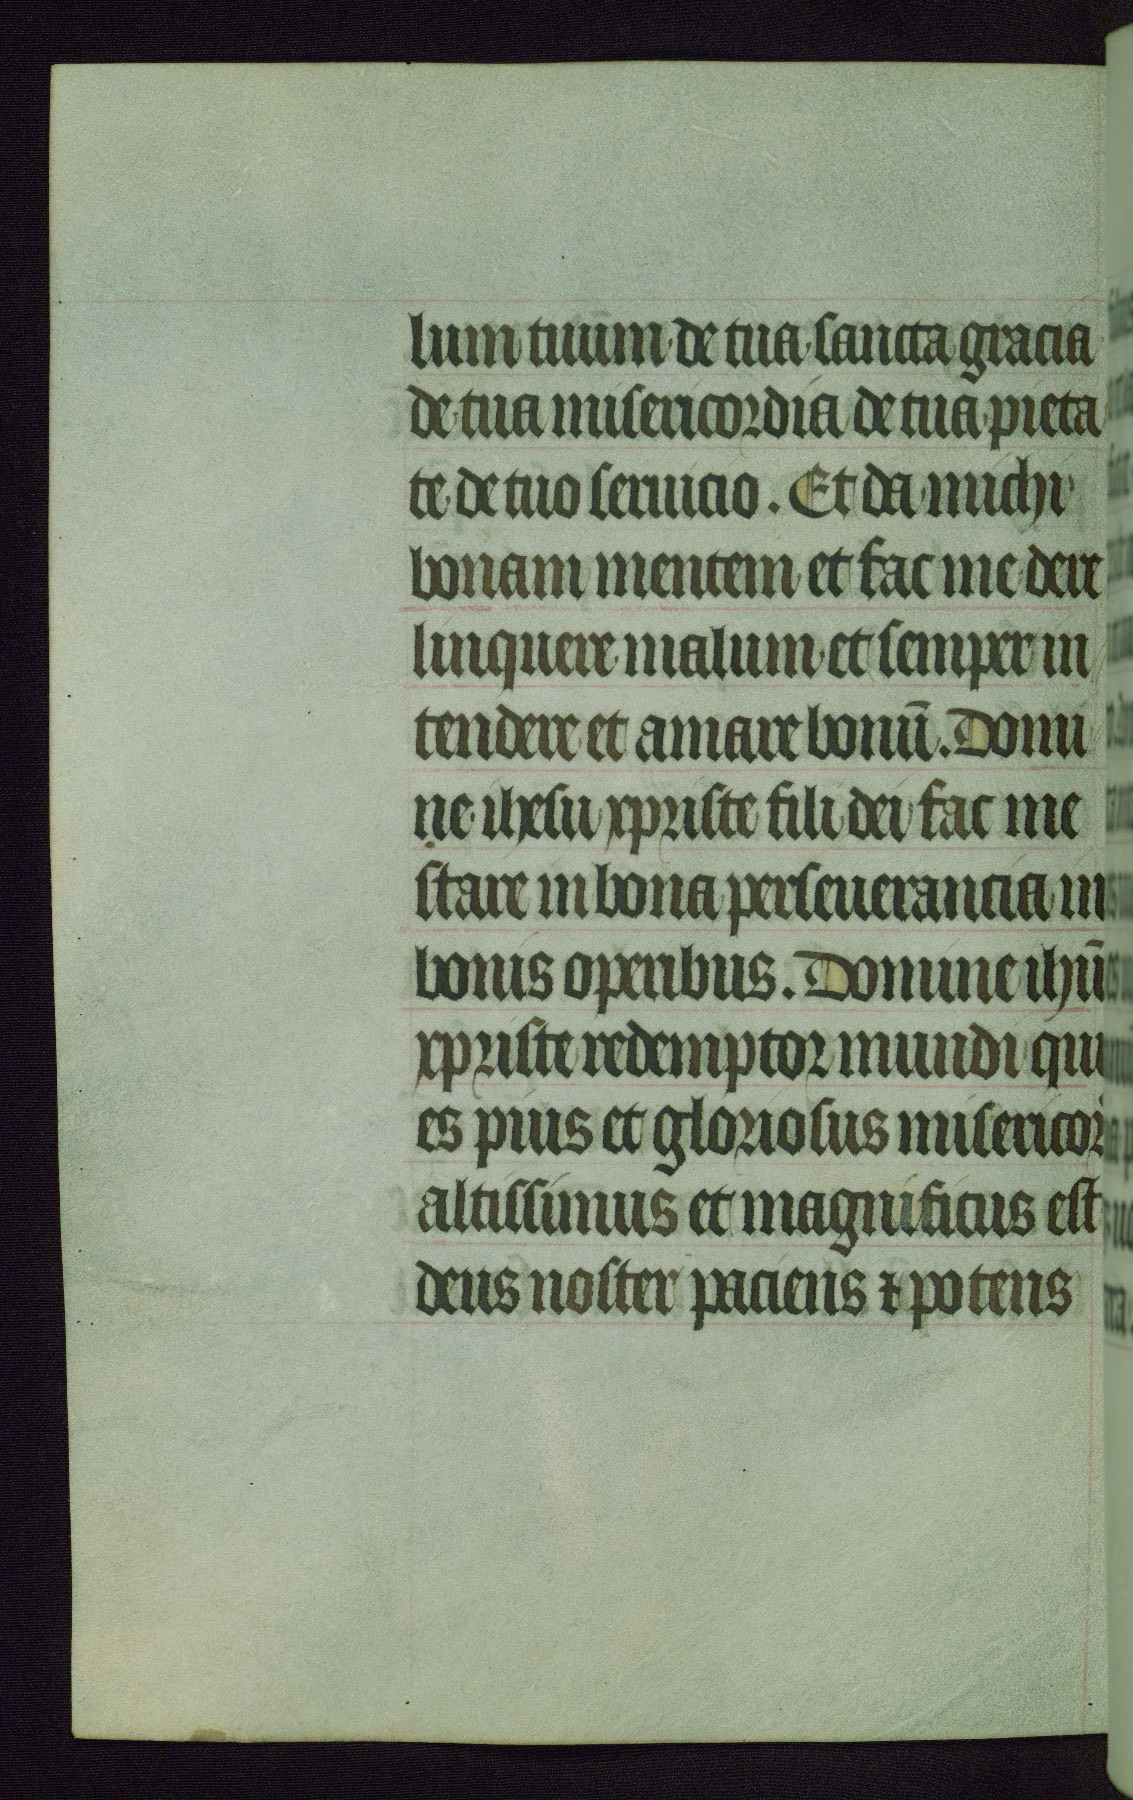 lum tuum de tua sancta gracia
de tua misericordia de tua pieta
te de tuo seruicio. Et da michi
bonam mentem et fac me dere
linquere malum et semper in
tendere et amare bonū. Domi
ne ihesu xpriste fili dei fac me
stare in bona perseuerancia in
bonis operibus. Domine ihū
xpriste redemptor mundi qui
es pius et gloriosus misericor
altissimus et magnificus est
deus noster paciens ⁊ potens